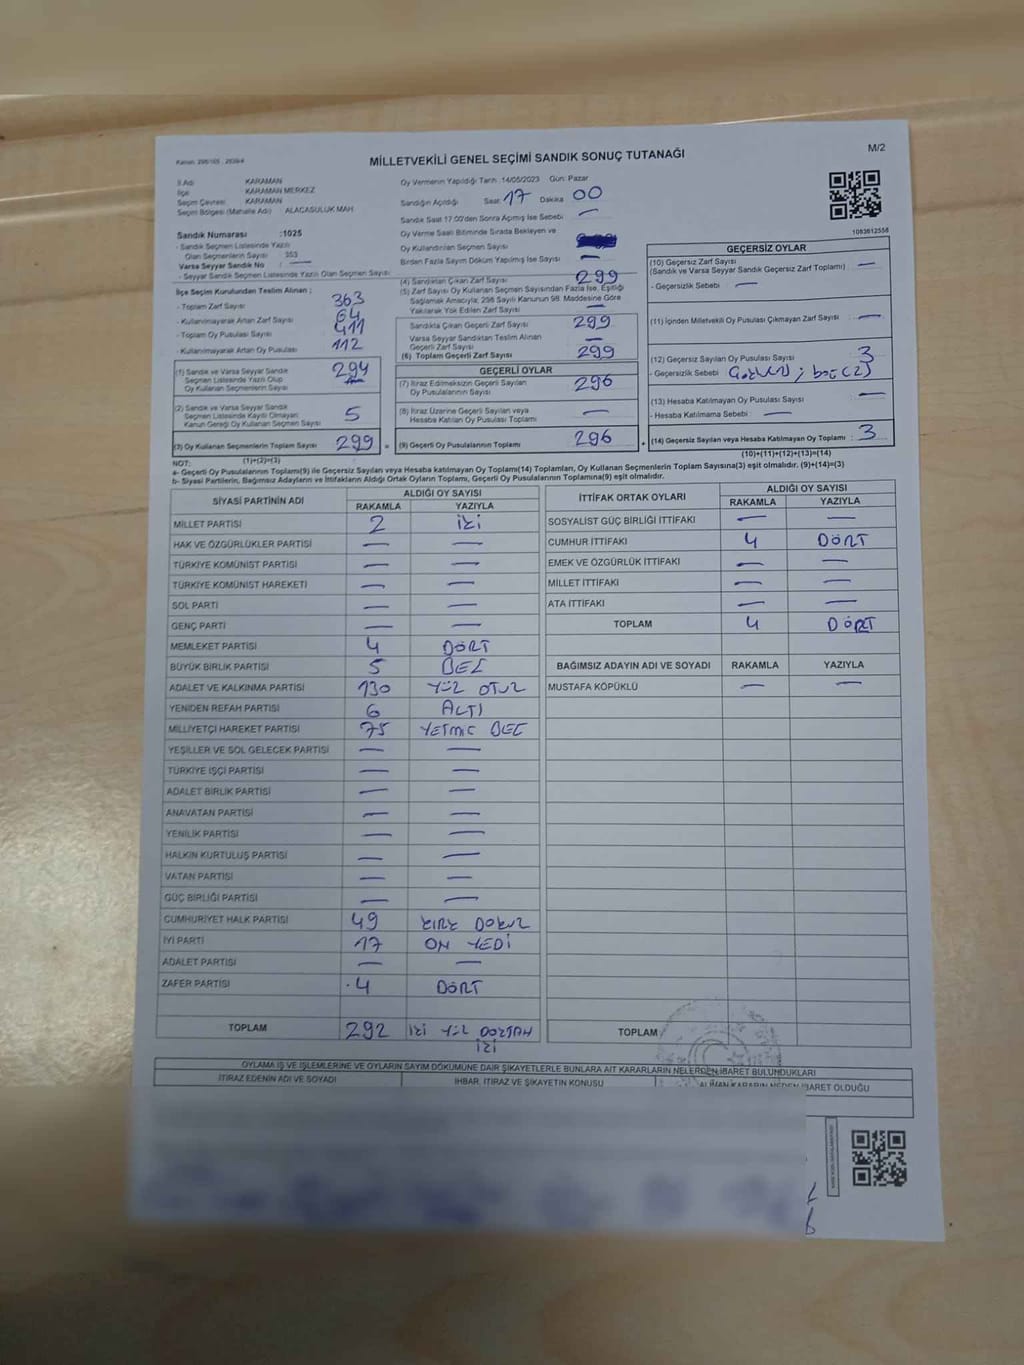 Kanun: 298/105 , 2839/4
MİLLETVEKİLİ GENEL SEÇİMİ SANDIK SONUÇ TUTANAĞI
M/2
İl Adı KARAMAN
İlçe KARAMAN MERKEZ
Seçim Çevresi KARAMAN
Seçim Bölgesi (Mahalle Adı) ALACASULUK MAH.
Sandık Numarası :1025
- Sandık Seçmen Listesinde Yazılı
Olan Seçmenlerin Sayısı 353
Varsa Seyyar Sandık No : —
- Seyyar Sandık Seçmen Listesinde Yazılı Olan Seçmen Sayısı
İlçe Seçim Kurulundan Teslim Alınan ;
- Toplam Zarf Sayısı 363
- Kullanılmayarak Artan Zarf Sayısı 64
- Toplam Oy Pusulası Sayısı 411
- Kullanılmayarak Artan Oy Pusulası 112
(1) Sandık ve Varsa Seyyar Sandık
Seçmen Listesinde Yazılı Olup
Oy Kullanan Seçmenlerin Sayısı 294
(2) Sandık ve Varsa Seyyar Sandık
Seçmen Listesinde Kayıtlı Olmayan
Kanun Gereği Oy Kullanan Seçmen Sayısı 5
(3) Oy Kullanan Seçmenlerin Toplam Sayısı 299
(1)+(2)=(3)
Oy Vermenin Yapıldığı Tarih :14/05/2023 Gün: Pazar
Sandığın Açıldığı Saat 17 Dakika 00
Sandık Saat 17.00'den Sonra Açılmış İse Sebebi —
Oy Verme Saati Bitiminde Sırada Bekleyen ve
Oy Kullandırılan Seçmen Sayısı
Birden Fazla Sayım Döküm Yapılmış İse Sayısı —
(4) Sandıktan Çıkan Zarf Sayısı 299
(5) Zarf Sayısı Oy Kullanan Seçmen Sayısından Fazla İse, Eşitliği
Sağlamak Amacıyla; 298 Sayılı Kanunun 98. Maddesine Göre
Yakılarak Yok Edilen Zarf Sayısı
Sandıkta Çıkan Geçerli Zarf Sayısı 299
Varsa Seyyar Sandıktan Teslim Alınan
Geçerli Zarf Sayısı —
(6) Toplam Geçerli Zarf Sayısı 299
GEÇERLİ OYLAR
(7) İtiraz Edilmeksizin Geçerli Sayılan
Oy Pusulalarının Sayısı 296
(8) İtiraz Üzerine Geçerli Sayılan veya
Hesaba Katılan Oy Pusulası Toplamı —
= (9) Geçerli Oy Pusulalarının Toplamı 296 +
1083812558
GEÇERSİZ OYLAR
(10) Geçersiz Zarf Sayısı —
(Sandık ve Varsa Seyyar Sandık Geçersiz Zarf Toplamı)
- Geçersizlik Sebebi : —
(11) İçinden Milletvekili Oy Pusulası Çıkmayan Zarf Sayısı —
(12) Geçersiz Sayılan Oy Pusulası Sayısı 3
- Geçersizlik Sebebi :
(13) Hesaba Katılmayan Oy Pusulası Sayısı —
- Hesaba Katılmama Sebebi : —
(14) Geçersiz Sayılan veya Hesaba Katılmayan Oy Toplamı : 3
(10)+(11)+(12)+(13)=(14)
NOT:
a- Geçerli Oy Pusulalarının Toplamı(9) ile Geçersiz Sayılan veya Hesaba katılmayan Oy Toplamı(14) Toplamları, Oy Kullanan Seçmenlerin Toplam Sayısına(3) eşit olmalıdır. (9)+(14)=(3)
b- Siyasi Partilerin, Bağımsız Adayların ve İttifakların Aldığı Ortak Oyların Toplamı, Geçerli Oy Pusulalarının Toplamına(9) eşit olmalıdır.
SİYASİ PARTİNİN ADI ALDIĞI OY SAYISI
RAKAMLA YAZIYLA
MİLLET PARTİSİ 2 İKİ
HAK VE ÖZGÜRLÜKLER PARTİSİ — —
TÜRKİYE KOMÜNİST PARTİSİ — —
TÜRKİYE KOMÜNİST HAREKETİ — —
SOL PARTİ — —
GENÇ PARTİ — —
MEMLEKET PARTİSİ 4 DÖRT
BÜYÜK BİRLİK PARTİSİ 5 BEŞ
ADALET VE KALKINMA PARTİSİ 130 YÜZ OTUZ
YENİDEN REFAH PARTİSİ 6 ALTI
MİLLİYETÇİ HAREKET PARTİSİ 75 YETMİŞ BEŞ
YEŞİLLER VE SOL GELECEK PARTİSİ — —
TÜRKİYE İŞÇİ PARTİSİ — —
ADALET BİRLİK PARTİSİ — —
ANAVATAN PARTİSİ — —
YENİLİK PARTİSİ — —
HALKIN KURTULUŞ PARTİSİ — —
VATAN PARTİSİ — —
GÜÇ BİRLİĞİ PARTİSİ — —
CUMHURİYET HALK PARTİSİ 49 KIRK DOKUZ
İYİ PARTİ 17 ON YEDİ
ADALET PARTİSİ — —
ZAFER PARTİSİ 4 DÖRT
TOPLAM 292 İKİ YÜZ DOKSAN
İKİ
İTTİFAK ORTAK OYLARI ALDIĞI OY SAYISI
RAKAMLA YAZIYLA
SOSYALİST GÜÇ BİRLİĞİ İTTİFAKI — —
CUMHUR İTTİFAKI 4 DÖRT
EMEK VE ÖZGÜRLÜK İTTİFAKI — —
MİLLET İTTİFAKI — —
ATA İTTİFAKI — —
TOPLAM 4 DÖRT
BAĞIMSIZ ADAYIN ADI VE SOYADI RAKAMLA YAZIYLA
MUSTAFA KÖPÜKLÜ — —
TOPLAM
OYLAMA İŞ VE İŞLEMLERİNE VE OYLARIN SAYIM DÖKÜMÜNE DAİR ŞİKAYETLERLE BUNLARA AİT KARARLARIN NELERDEN İBARET BULUNDUKLARI
İTİRAZ EDENİN ADI VE SOYADI İHBAR, İTİRAZ VE ŞİKAYETİN KONUSU ALINAN KARARIN NEDEN İBARET OLDUĞU